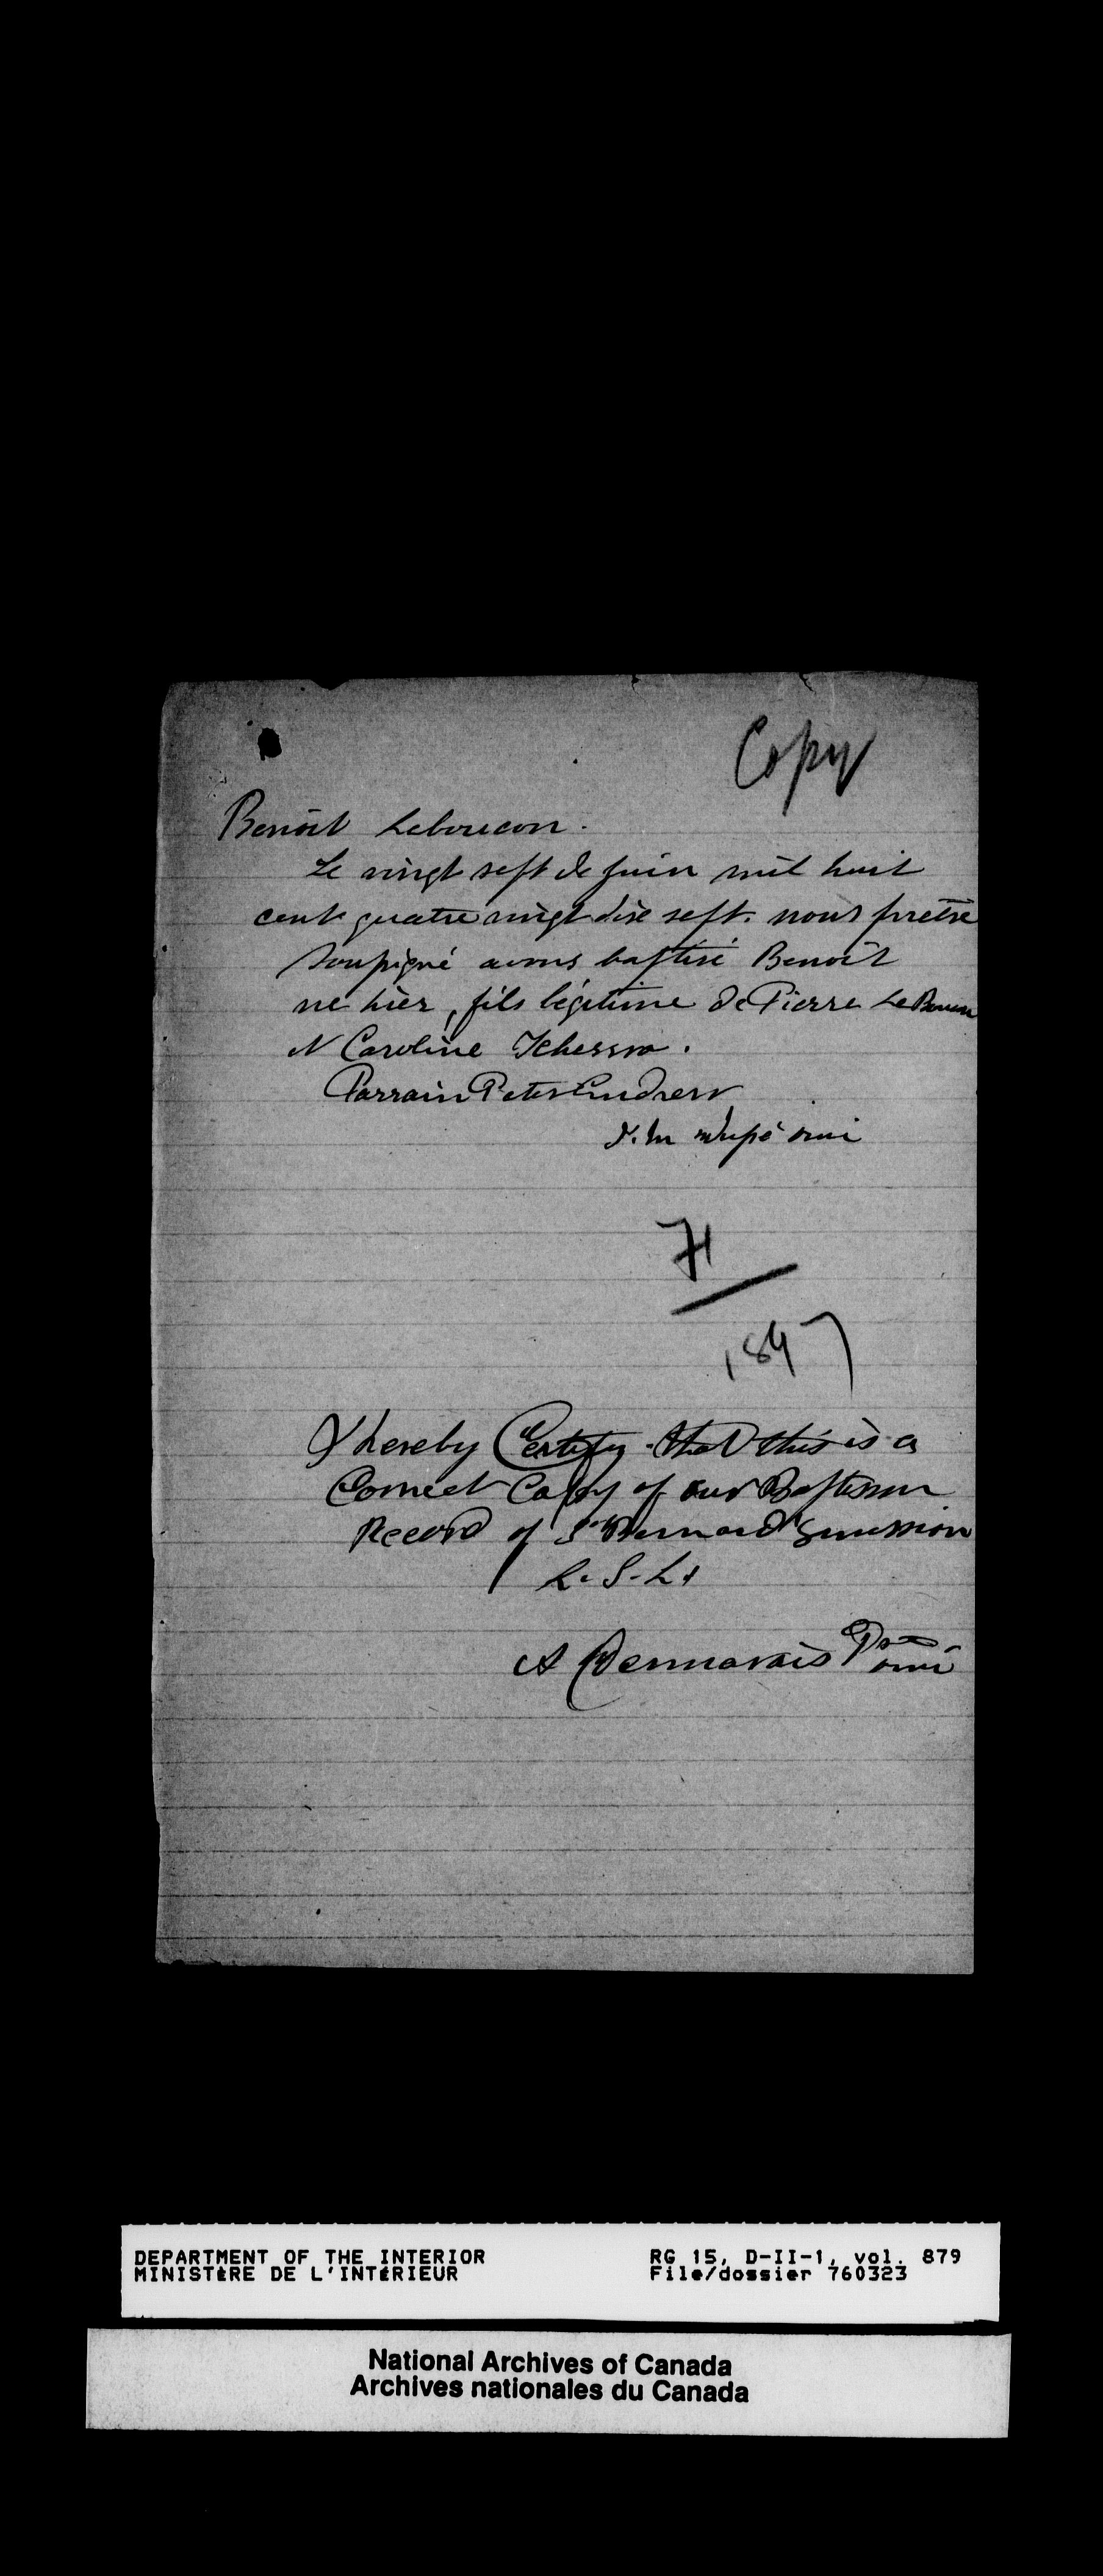 Copy
Benoit Leboucon.
Le vingt sept de juin mil huit
cent quatre vingt dix sept. nous prêtre
soussigné avons baptisé Benoît
ne hier, fils légitime de Pierre Le
et Caroline
Parrain Peter Endress
omi
71
1897
I hereby Certify that this is a
Correct Copy of our Baptism
Record of St Bernard's mission
L. S. L.
A Desmarais Ptre
omi
DEPARTMENT OF THE INTERIOR
MINISTÈRE DE L'INTÉRIEUR
RG 15, D-II-1, vol. 879
File/dossier 760323
National Archives of Canada
Archives nationales du Canada